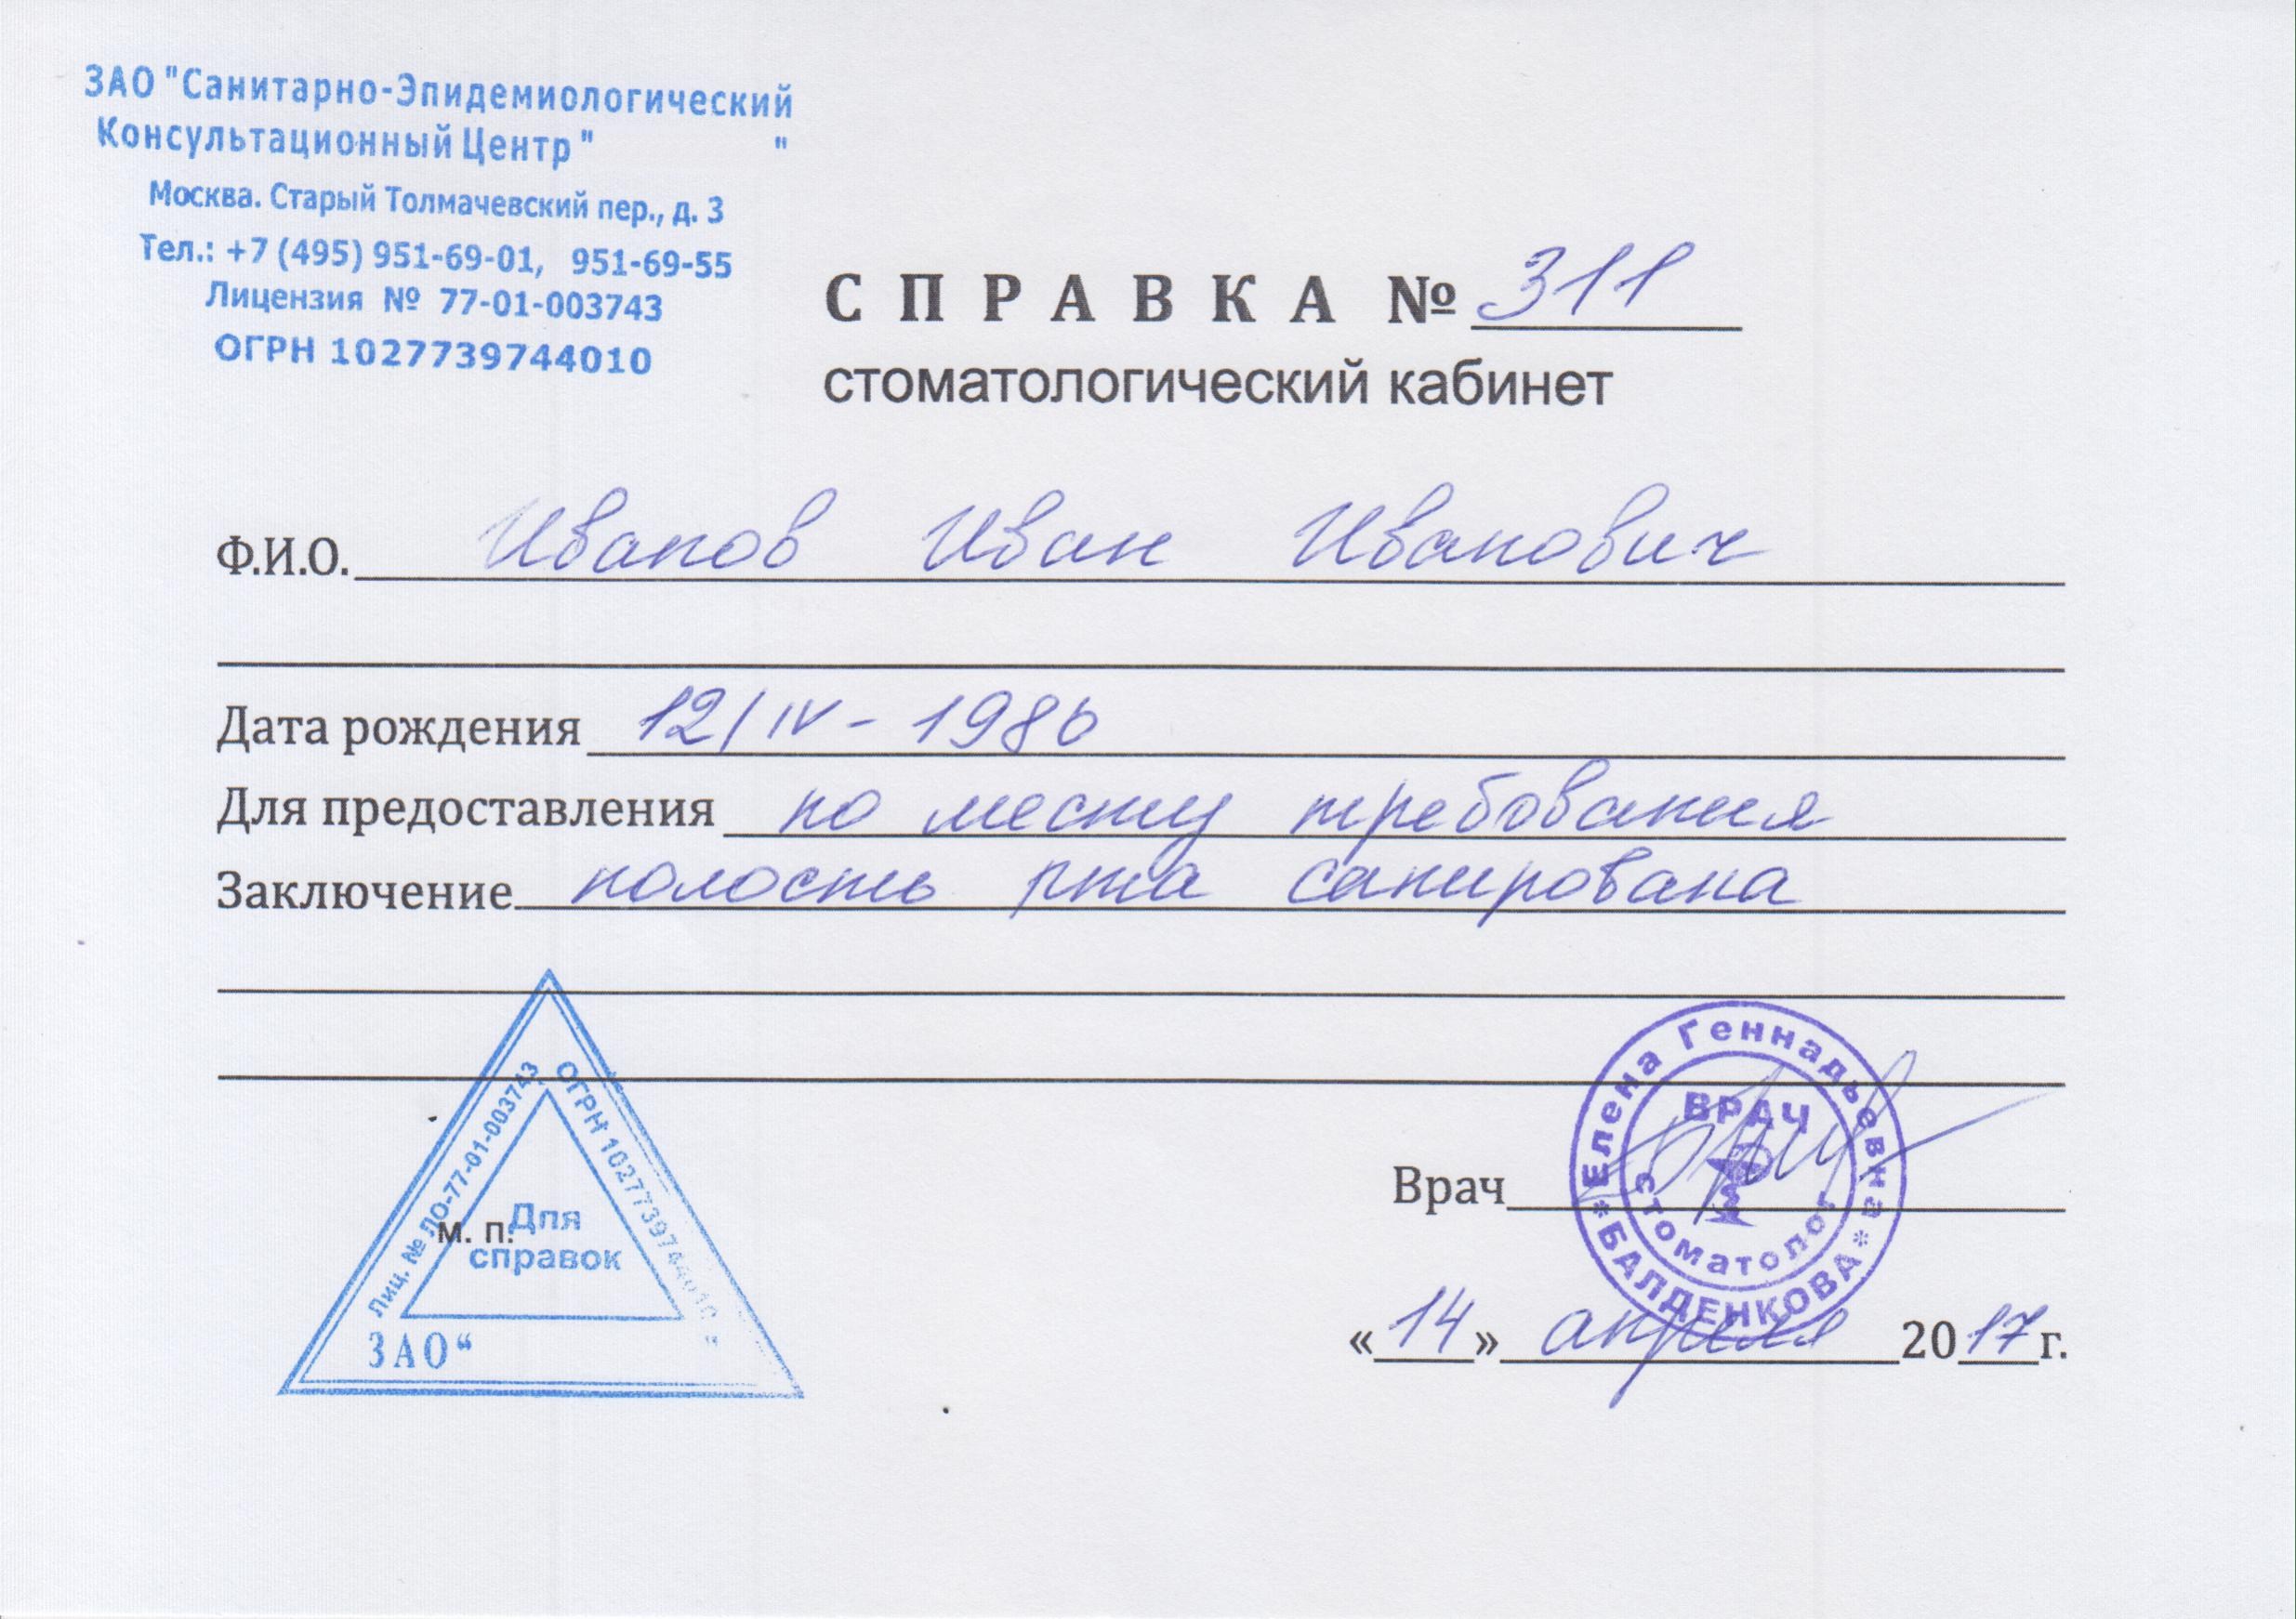 ЗАО "Санитарно-Эпидемиологический
Консультационный Центр" "
Москва. Старый Толмачевский пер., д. 3
Тел.: +7 (495) 951-69-01, 951-69-55
Лицензия № 77-01-003743
ОГРН 1027739744010
СПРАВКА № 311
стоматологический кабинет
Ф.И.О. Иванов Иван Иванович
Дата рождения 12/IV - 1986
Для предоставления по месту требования
Заключение полость рта санирована
Лиц. № ЛО-77-01-003743
ОГРН 1027739744010 "
Для
справок
ЗАО“
м. п.
Врач
Елена Геннадьевна
*БАЛДЕНКОВА*
ВРАЧ
стоматолог
«14» апреля 2017 г.